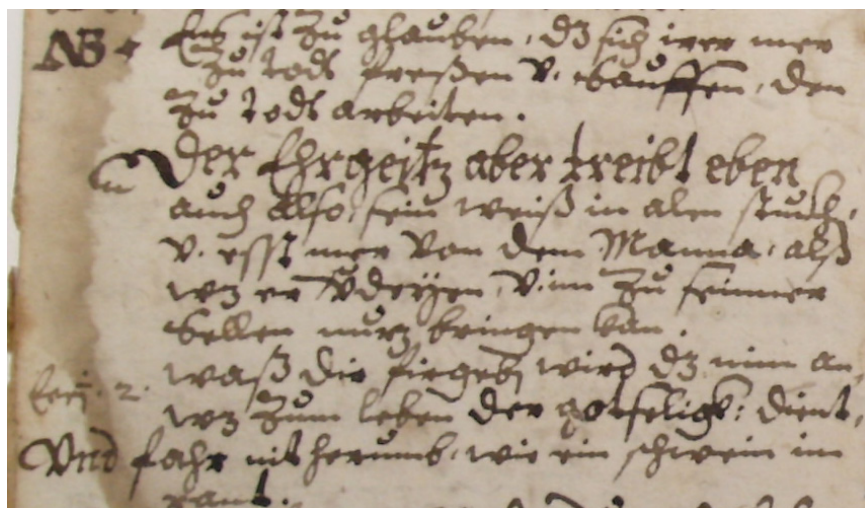 NB Eß ist zu glauben, dz sich irer mer
zu tods freßen v. sauffen, den
zu tods arbeiten.
Der Ehrgeitz aber treibt eben
auch also sein weiß in alen stuckh,
v. esst mer von dem Manna, alß
wz er v. im zu seinner
sellen nutz bringen kan.
waß dir firgebn wird dz nim an,
wz zum leben der gotseligk: dient,
Und fahr nit herumb, wie ein schwein im